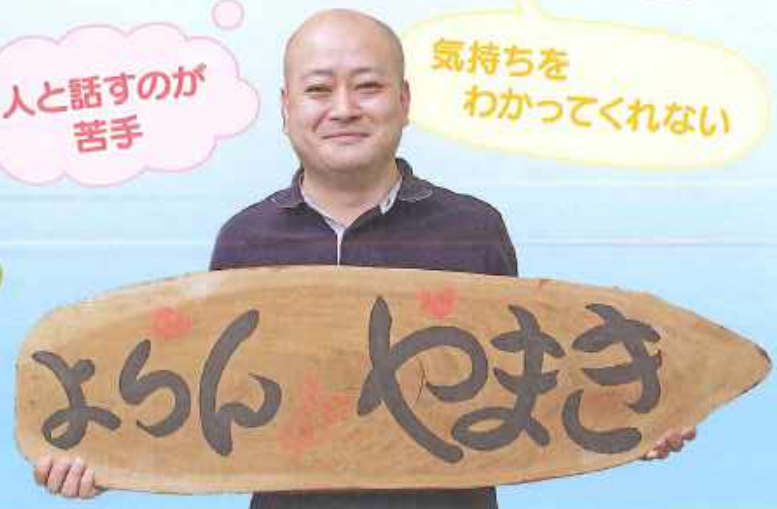 人と話すのが
苦手
気持ちを
わかってくれない
よらん やまき